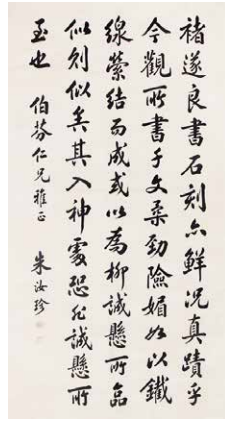 褚遂良書石刻亦鮮況真蹟乎
今觀所書千文柔勁險媚如以鐵
線縈結而成或以為柳誠懸所臨
似則似矣其入神處恐非誠懸所
到也
伯芬仁兄雅正
朱汝珍